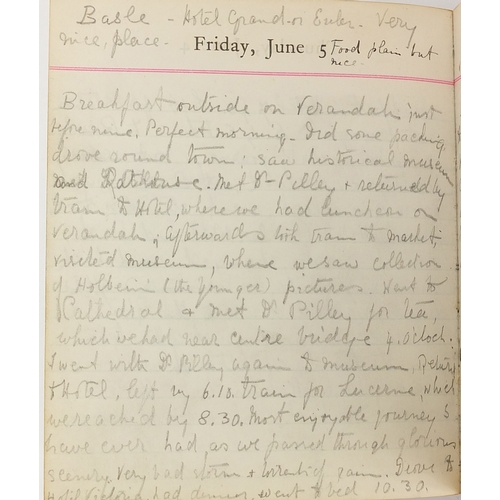 Basle - Hotel Grand-or Euler. Very
nice, place.
Friday, June 5 Food plain but
nice.
Breakfast outside on Verandah just
before nine. Perfect morning. Did some packing,
drove round town; saw historical museum
and Rathhouse. Met Dr Pilley & returned by
tram to Hotel, where we had luncheon on
Verandah, afterwards took tram to market;
visited museum, where we saw collection
of Holbein (the younger) pictures. Went to
Cathedral & met Dr Pilley for tea,
which we had near centre bridge 4. O'clock.
I went with Dr Pilley again to museum,
to Hotel, left by 6.10. train for Lucerne, which
we reached by 8.30. Most enjoyable journey I
have ever had, as we passed through glorious
scenery. Very bad storm & torrential rain. Drove to
Hotel Victoria, had dinner, went to bed 10.30.